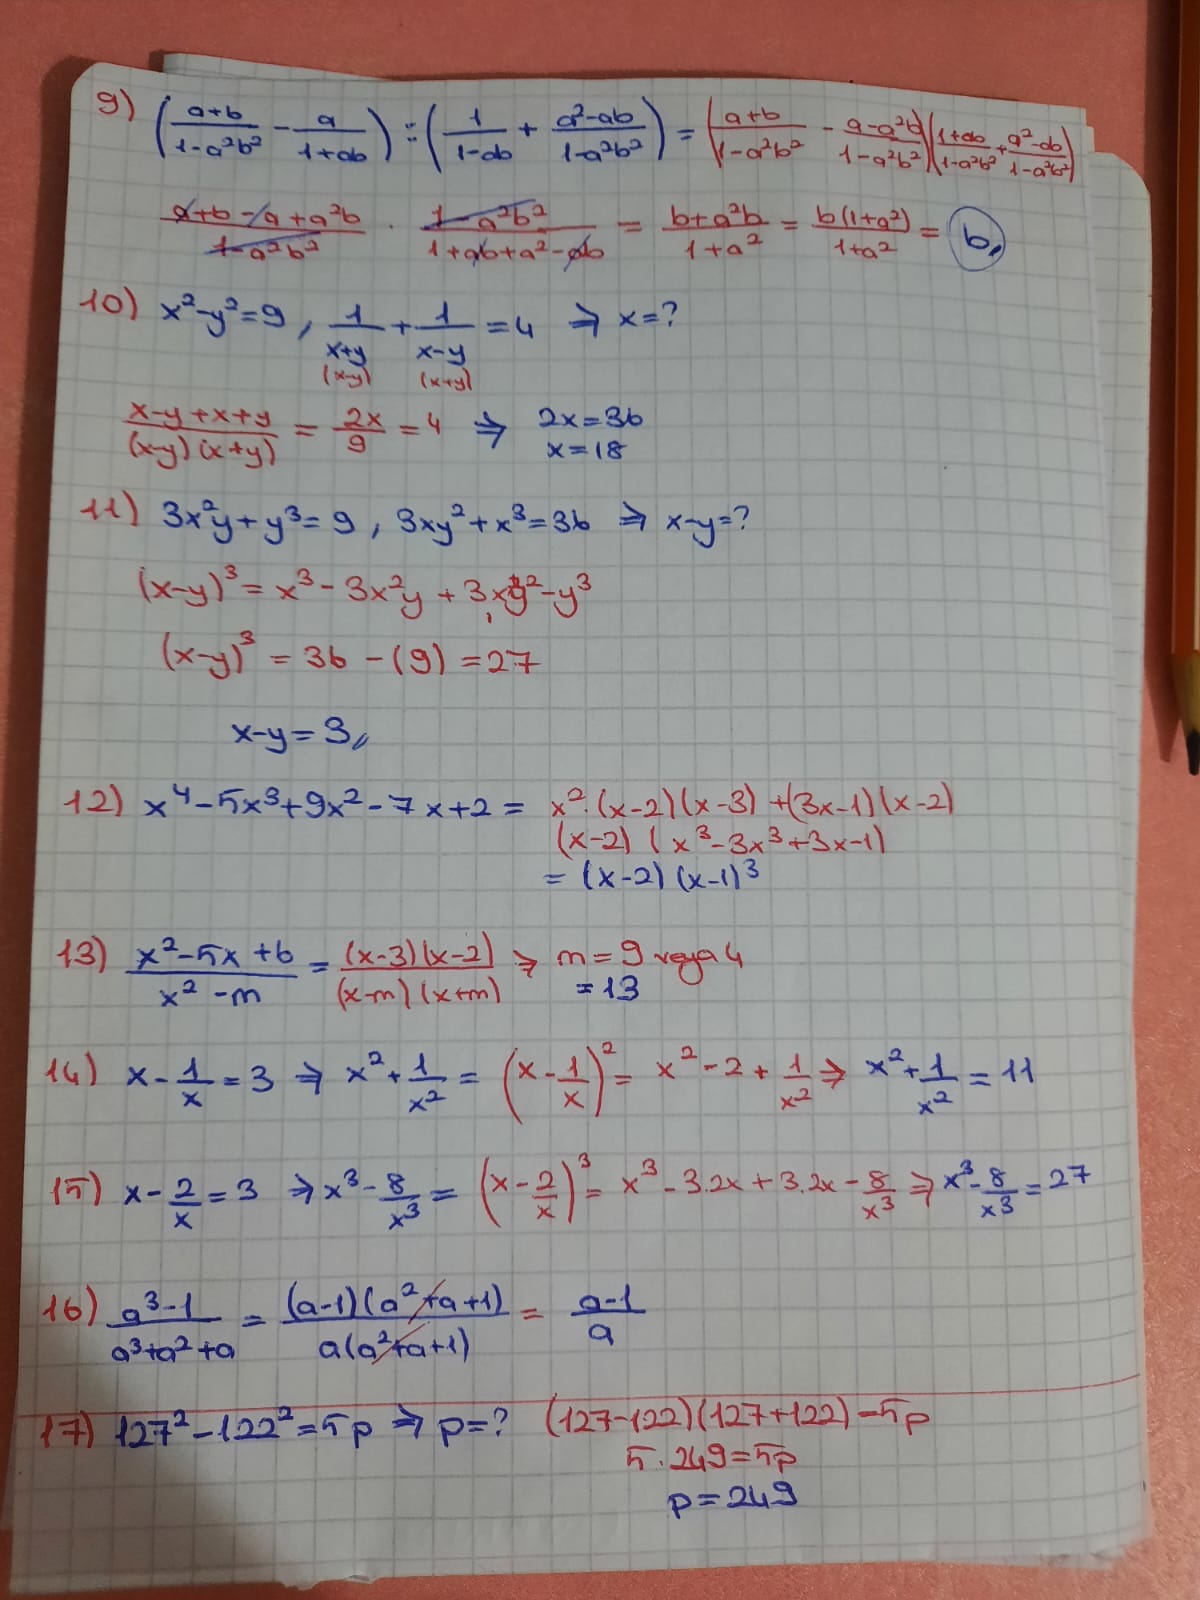 9) ((a+b)/(1-a²b²) - a/(1+ab)) : (1/(1-ab) + (a²-ab)/(1-a²b²)) = ((a+b)/(1-a²b²) - (a-a²b)/(1-a²b²)) ((1+ab)/(1-a²b²) + (a²-ab)/(1-a²b²))
(a+b-a+a²b)/(1-a²b²) · (1-a²b²)/(1+ab+a²-ab) = (b+a²b)/(1+a²) = b(1+a²)/(1+a²) = b
10) x²-y²=9, 1/(x+y) + 1/(x-y) = 4 ⇒ x=?
(x-y) (x+y)
(x-y+x+y)/((x-y)(x+y)) = 2x/9 = 4 ⇒ 2x=36
x=18
11) 3x²y+y³=9, 3xy²+x³=36 ⇒ x-y=?
(x-y)³ = x³-3x²y+3xy²-y³
(x-y)³ = 36-(9) = 27
x-y=3
12) x⁴-5x³+9x²-7x+2 = x²·(x-2)(x-3)+(3x-1)(x-2)
(x-2)(x³-3x³+3x-1)
= (x-2)(x-1)³
13) (x²-5x+6)/(x²-m) = (x-3)(x-2)/((x-m)(x+m)) ⇒ m=9 veya 4
=13
14) x-1/x=3 ⇒ x²+1/x² = (x-1/x)² = x²-2+1/x² ⇒ x²+1/x²=11
15) x-2/x=3 ⇒ x³-8/x³ = (x-2/x)³ = x³-3.2x+3.2x-8/x³ ⇒ x³-8/x³=27
16) (a³-1)/(a³+a²+a) = (a-1)(a²+a+1)/(a(a²+a+1)) = (a-1)/a
17) 127²-122²=5p ⇒ p=? (127-122)(127+122)=5p
5.249=5p
p=249